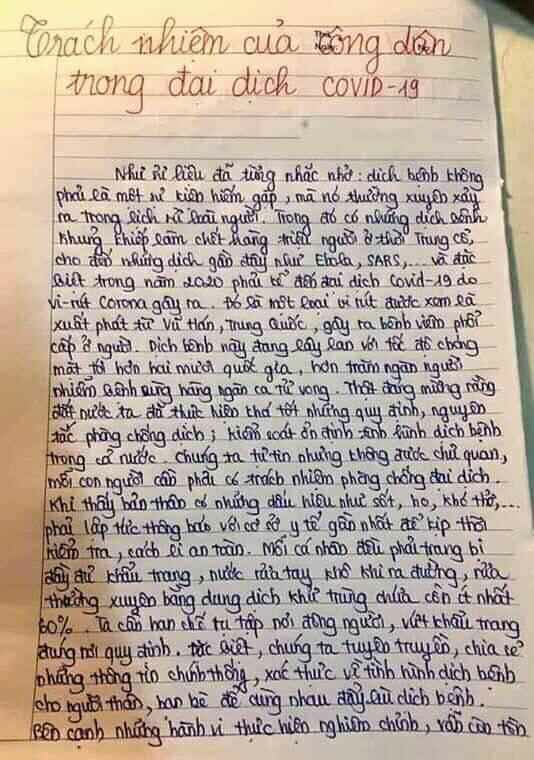 Trách nhiệm của công dân
trong đại dịch COVID-19
Như sử liệu đã từng nhắc nhở: dịch bệnh không
phải là một sự kiện hiếm gặp, mà nó thường xuyên xảy
ra trong lịch sử loài người. Trong đó có những dịch bệnh
khủng khiếp làm chết hàng triệu người ở thời Trung Cổ,
cho đến những dịch gần đây như Ebola, SARS,... và đặc
biệt trong năm 2020 phải kể đến đại dịch Covid-19 do
vi-rút Corona gây ra. Đó là một loại vi rút được xem là
xuất phát từ Vũ Hán, Trung Quốc, gây ra bệnh viêm phổi
cấp ở người. Dịch bệnh này đang lây lan với tốc độ chóng
mặt tới hơn hai mươi quốc gia, hơn trăm ngàn người
nhiễm bệnh cùng hàng ngàn ca tử vong. Thật đáng mừng rằng
đất nước ta đã thực hiện khá tốt những quy định, nguyên
tắc phòng chống dịch; kiểm soát ổn định tình hình dịch bệnh
trong cả nước. Chúng ta tự tin nhưng không được chủ quan,
mỗi con người cần phải có trách nhiệm phòng chống đại dịch.
Khi thấy bản thân có những dấu hiệu như sốt, ho, khó thở,...
phải lập tức thông báo với cơ sở y tế gần nhất để kịp thời
kiểm tra, cách li an toàn. Mỗi cá nhân đều phải trang bị
đầy đủ khẩu trang, nước rửa tay khô khi ra đường, rửa
thường xuyên bằng dung dịch khử trùng chứa cồn ít nhất
60%. Ta cần hạn chế tụ tập nơi đông người, vứt khẩu trang
đúng nơi quy định. Đặc biệt, chúng ta tuyên truyền, chia sẻ
những thông tin chính thống, xác thực về tình hình dịch bệnh
cho người thân, bạn bè để cùng nhau đẩy lùi dịch bệnh.
Bên cạnh những hành vi thực hiện nghiêm chỉnh, vẫn còn tồn